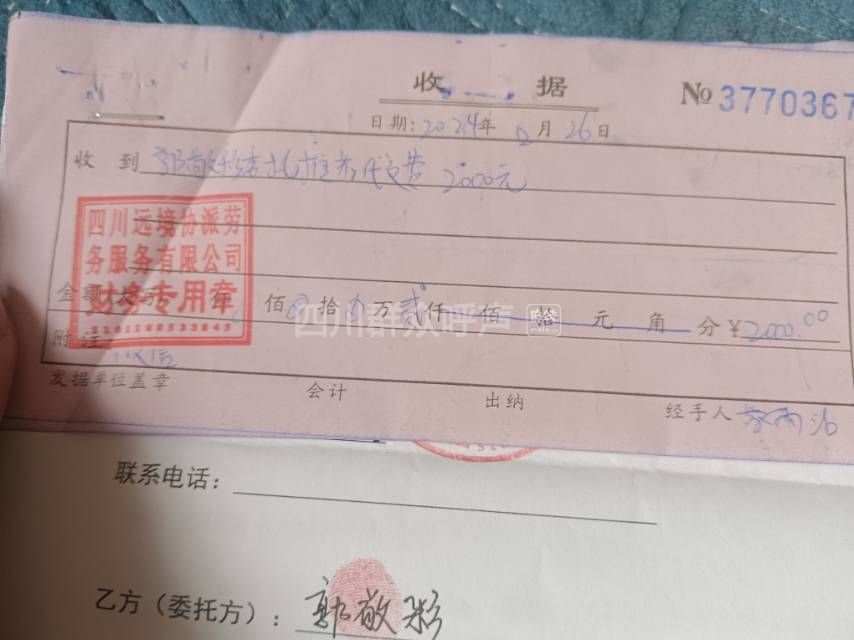 收 据
№ 3770367
日期: 2024年 月 26日
收 到 郭敬彩委托 代交费 2000元
四川远境协派劳
务服务有限公司
财务专用章
金额 佰 拾 万 贰仟 佰 拾 元 角 分 ¥2000.00
附 注
微信
发据单位盖章 会计 出纳 经手人
四川群众呼声
联系电话:
乙方（委托方）: 郭敬彩